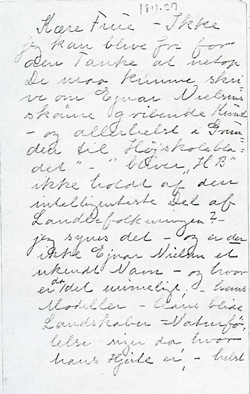 18/1.27
Kære Frue - Ikke
jeg kan blive fri for
den Tanke at netop
De maa kunne skri-
ve om Ejnar Nielsens
skønne gribende Kunst
- og allerhelst i
til Højskolebla-
det" - " bliver "H B"
ikke holdt af den
intelligenteste Del af
Landbefolkningen? -
jeg synes det - og er der
ikke Ejnar Nielsen et
ukendt Navn - og hvor
er det urimeligt! - hans
Modeller - hans blide
Landskaber - Naturfø-
lelse - siger da hvor
hans Hjerte er! - helst